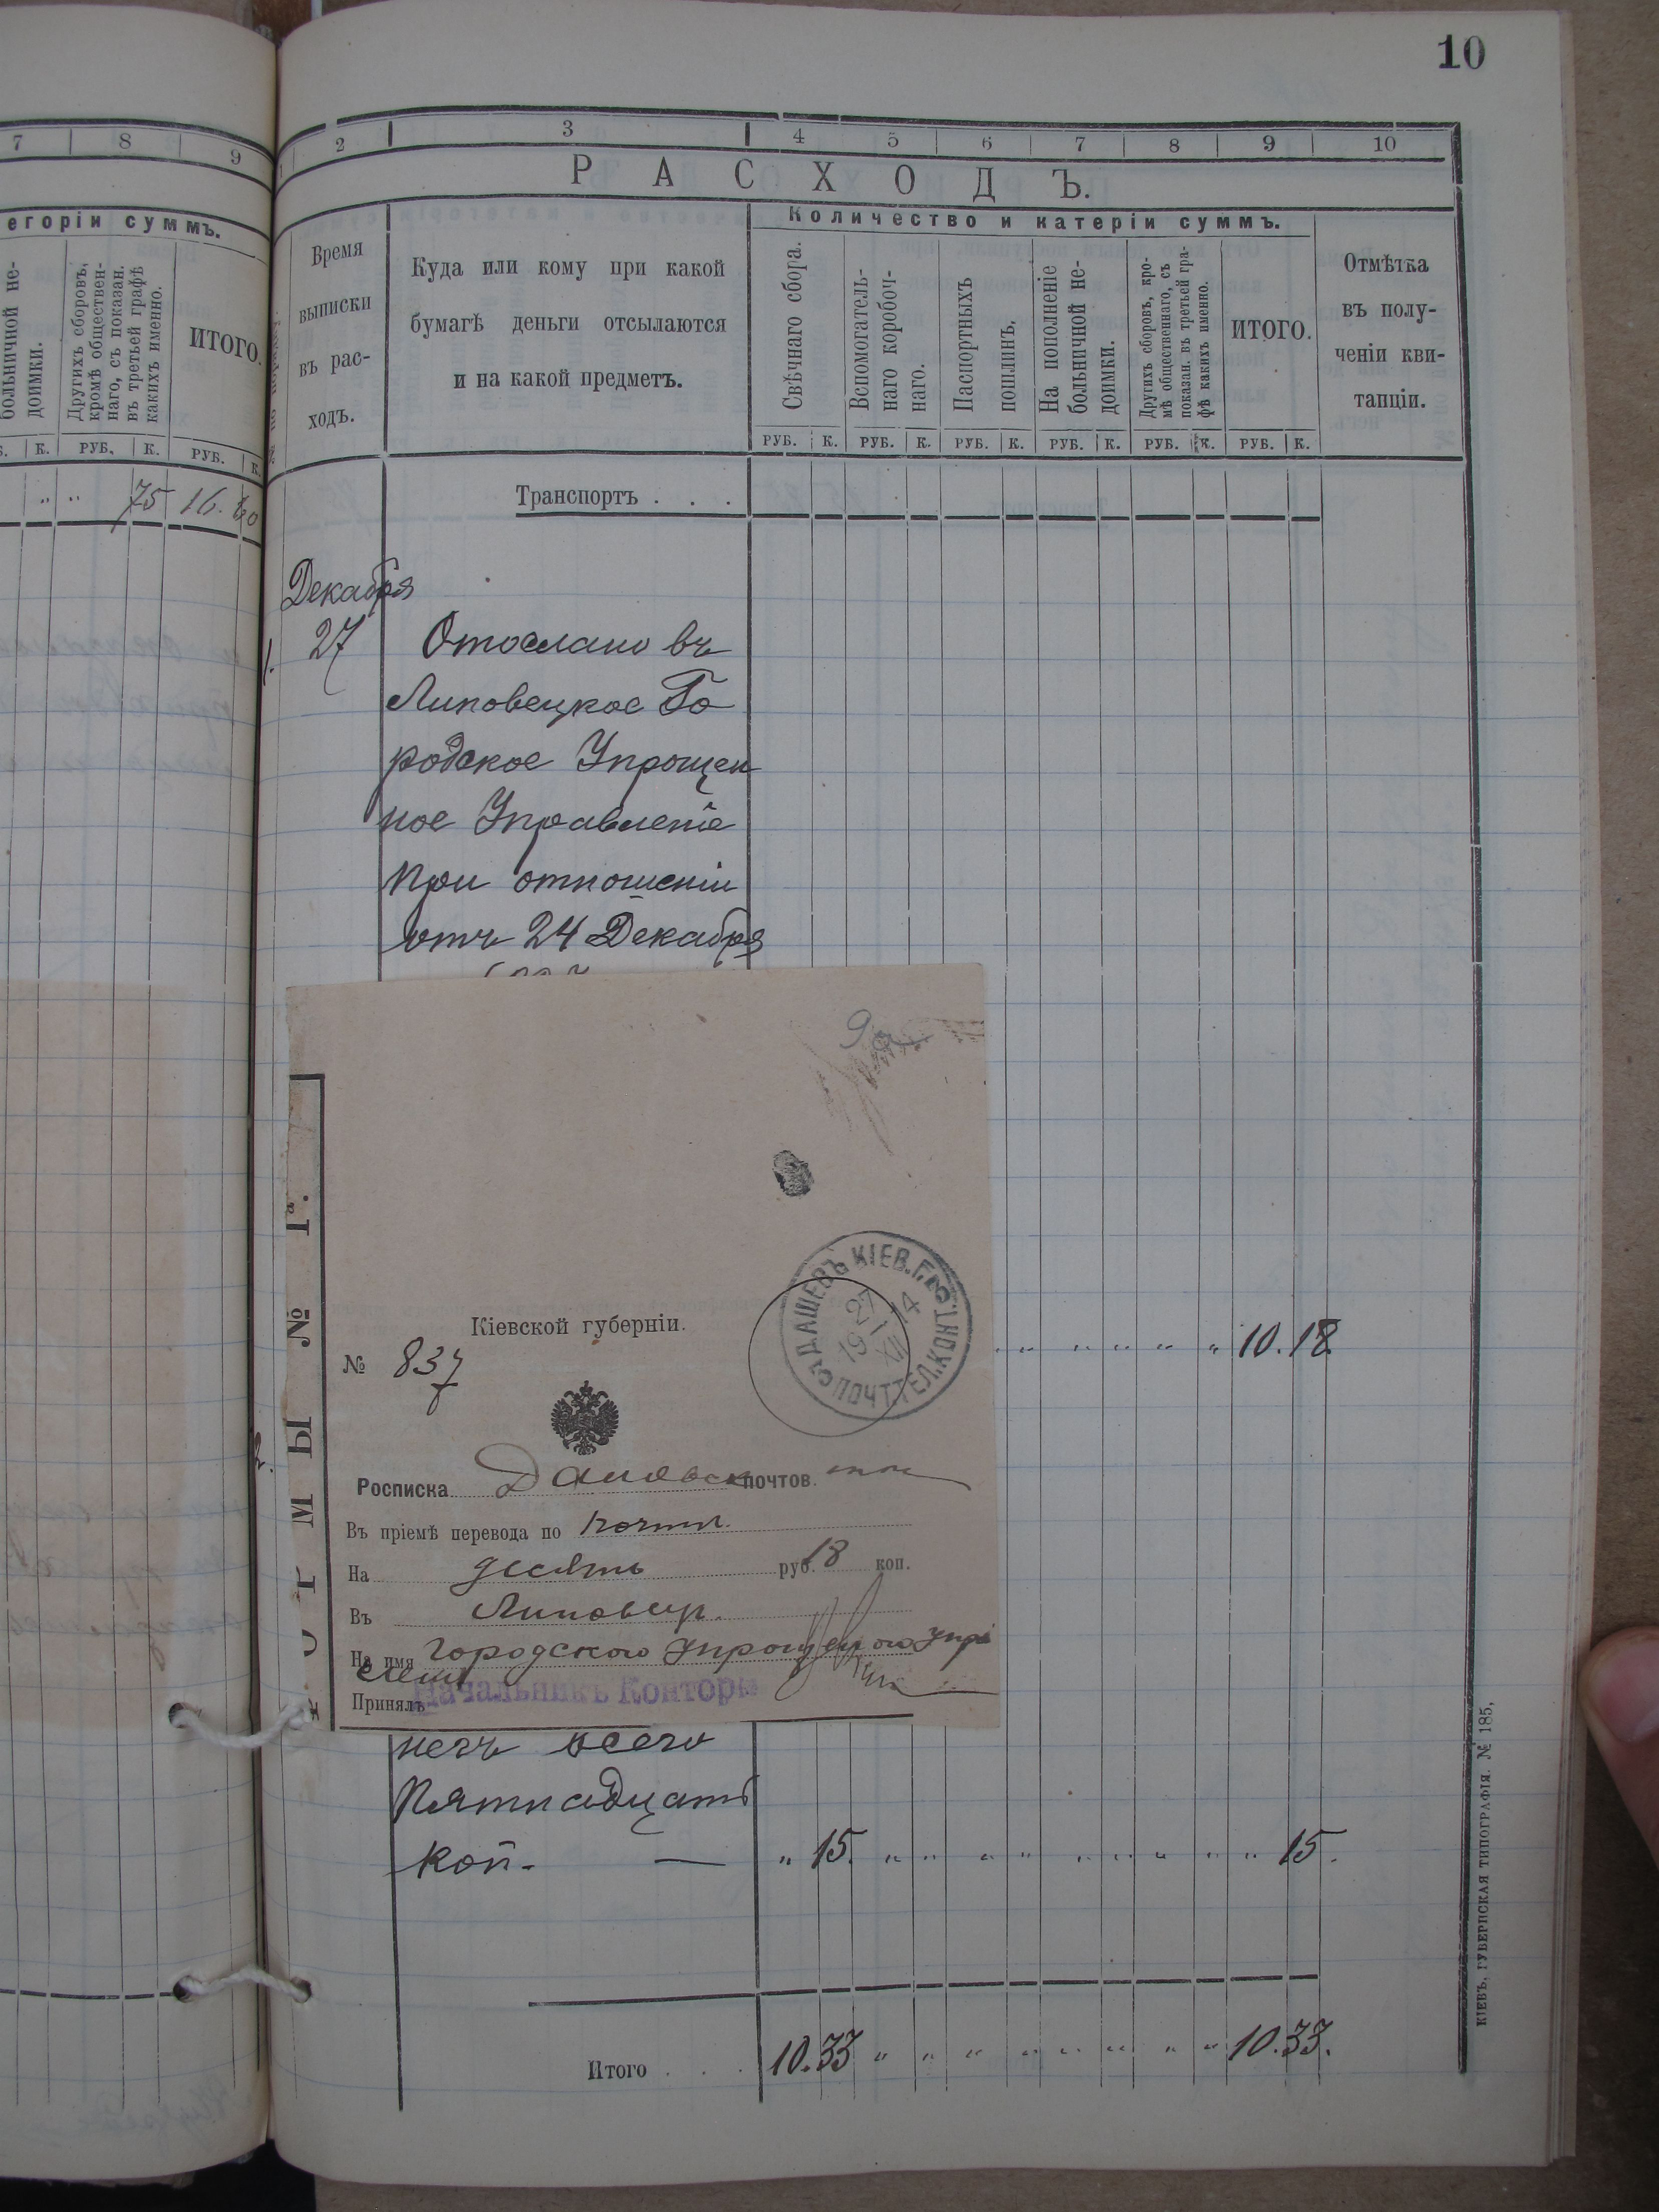 10
7 8 9
егоріи суммъ.
больничной не-
доимки.
Другихъ сборовъ,
кромѣ обществен-
наго, съ показан.
въ третьей графѣ
какихъ именно.
ИТОГО.
К. РУБ. К. РУБ. К.
" " 75 16. 60
2 3 4 5 6 7 8 9 10
РАСХОДЪ.
Время
выписки
въ рас-
ходъ.
Куда или кому при какой
бумагѣ деньги отсылаются
и на какой предметъ.
Количество и катеріи суммъ.
Свѣчнаго сбора.
Вспомогатель-
наго коробоч-
наго.
Паспортныхъ
пошлинъ.
На пополненіе
больничной не-
доимки.
Другихъ сборовъ, кро-
мѣ общественнаго, съ
показан. въ третьей гра-
фѣ какихъ именно.
ИТОГО.
Отмѣтка
въ полу-
ченіи кви-
танціи.
РУБ. К. РУБ. К. РУБ. К. РУБ. К. РУБ. К. РУБ. К.
Транспортъ . . .
Декабря
1. 27 Отослано въ
Липовецкое Го
родское Упрощен
ное Управленіе
при отношеніи
отъ 24 Декабря
ФОРМЫ № 1
Кіевской губерніи.
№ 837
ДАШЕВЪ КІЕВ. Г.
ПОЧТ. ТЕЛ. КОНТ.
27 XII 14
" " " " " " 10.18
2.
Росписка Дашевск почтов.
Въ пріемѣ перевода по почт.
На десять руб. 18 коп.
Въ Липовец.
На имя Городского Упрощеного Упра
Принялъ Начальникъ Конторы
негъ всего
пятнадцать
коп. — " 15. " " " " " " " " " 15.
Итого . . . 10.33 " " " " " " " " 10.33.
КІЕВЪ, ГУБЕРНСКАЯ ТИПОГРАФІЯ. № 185,